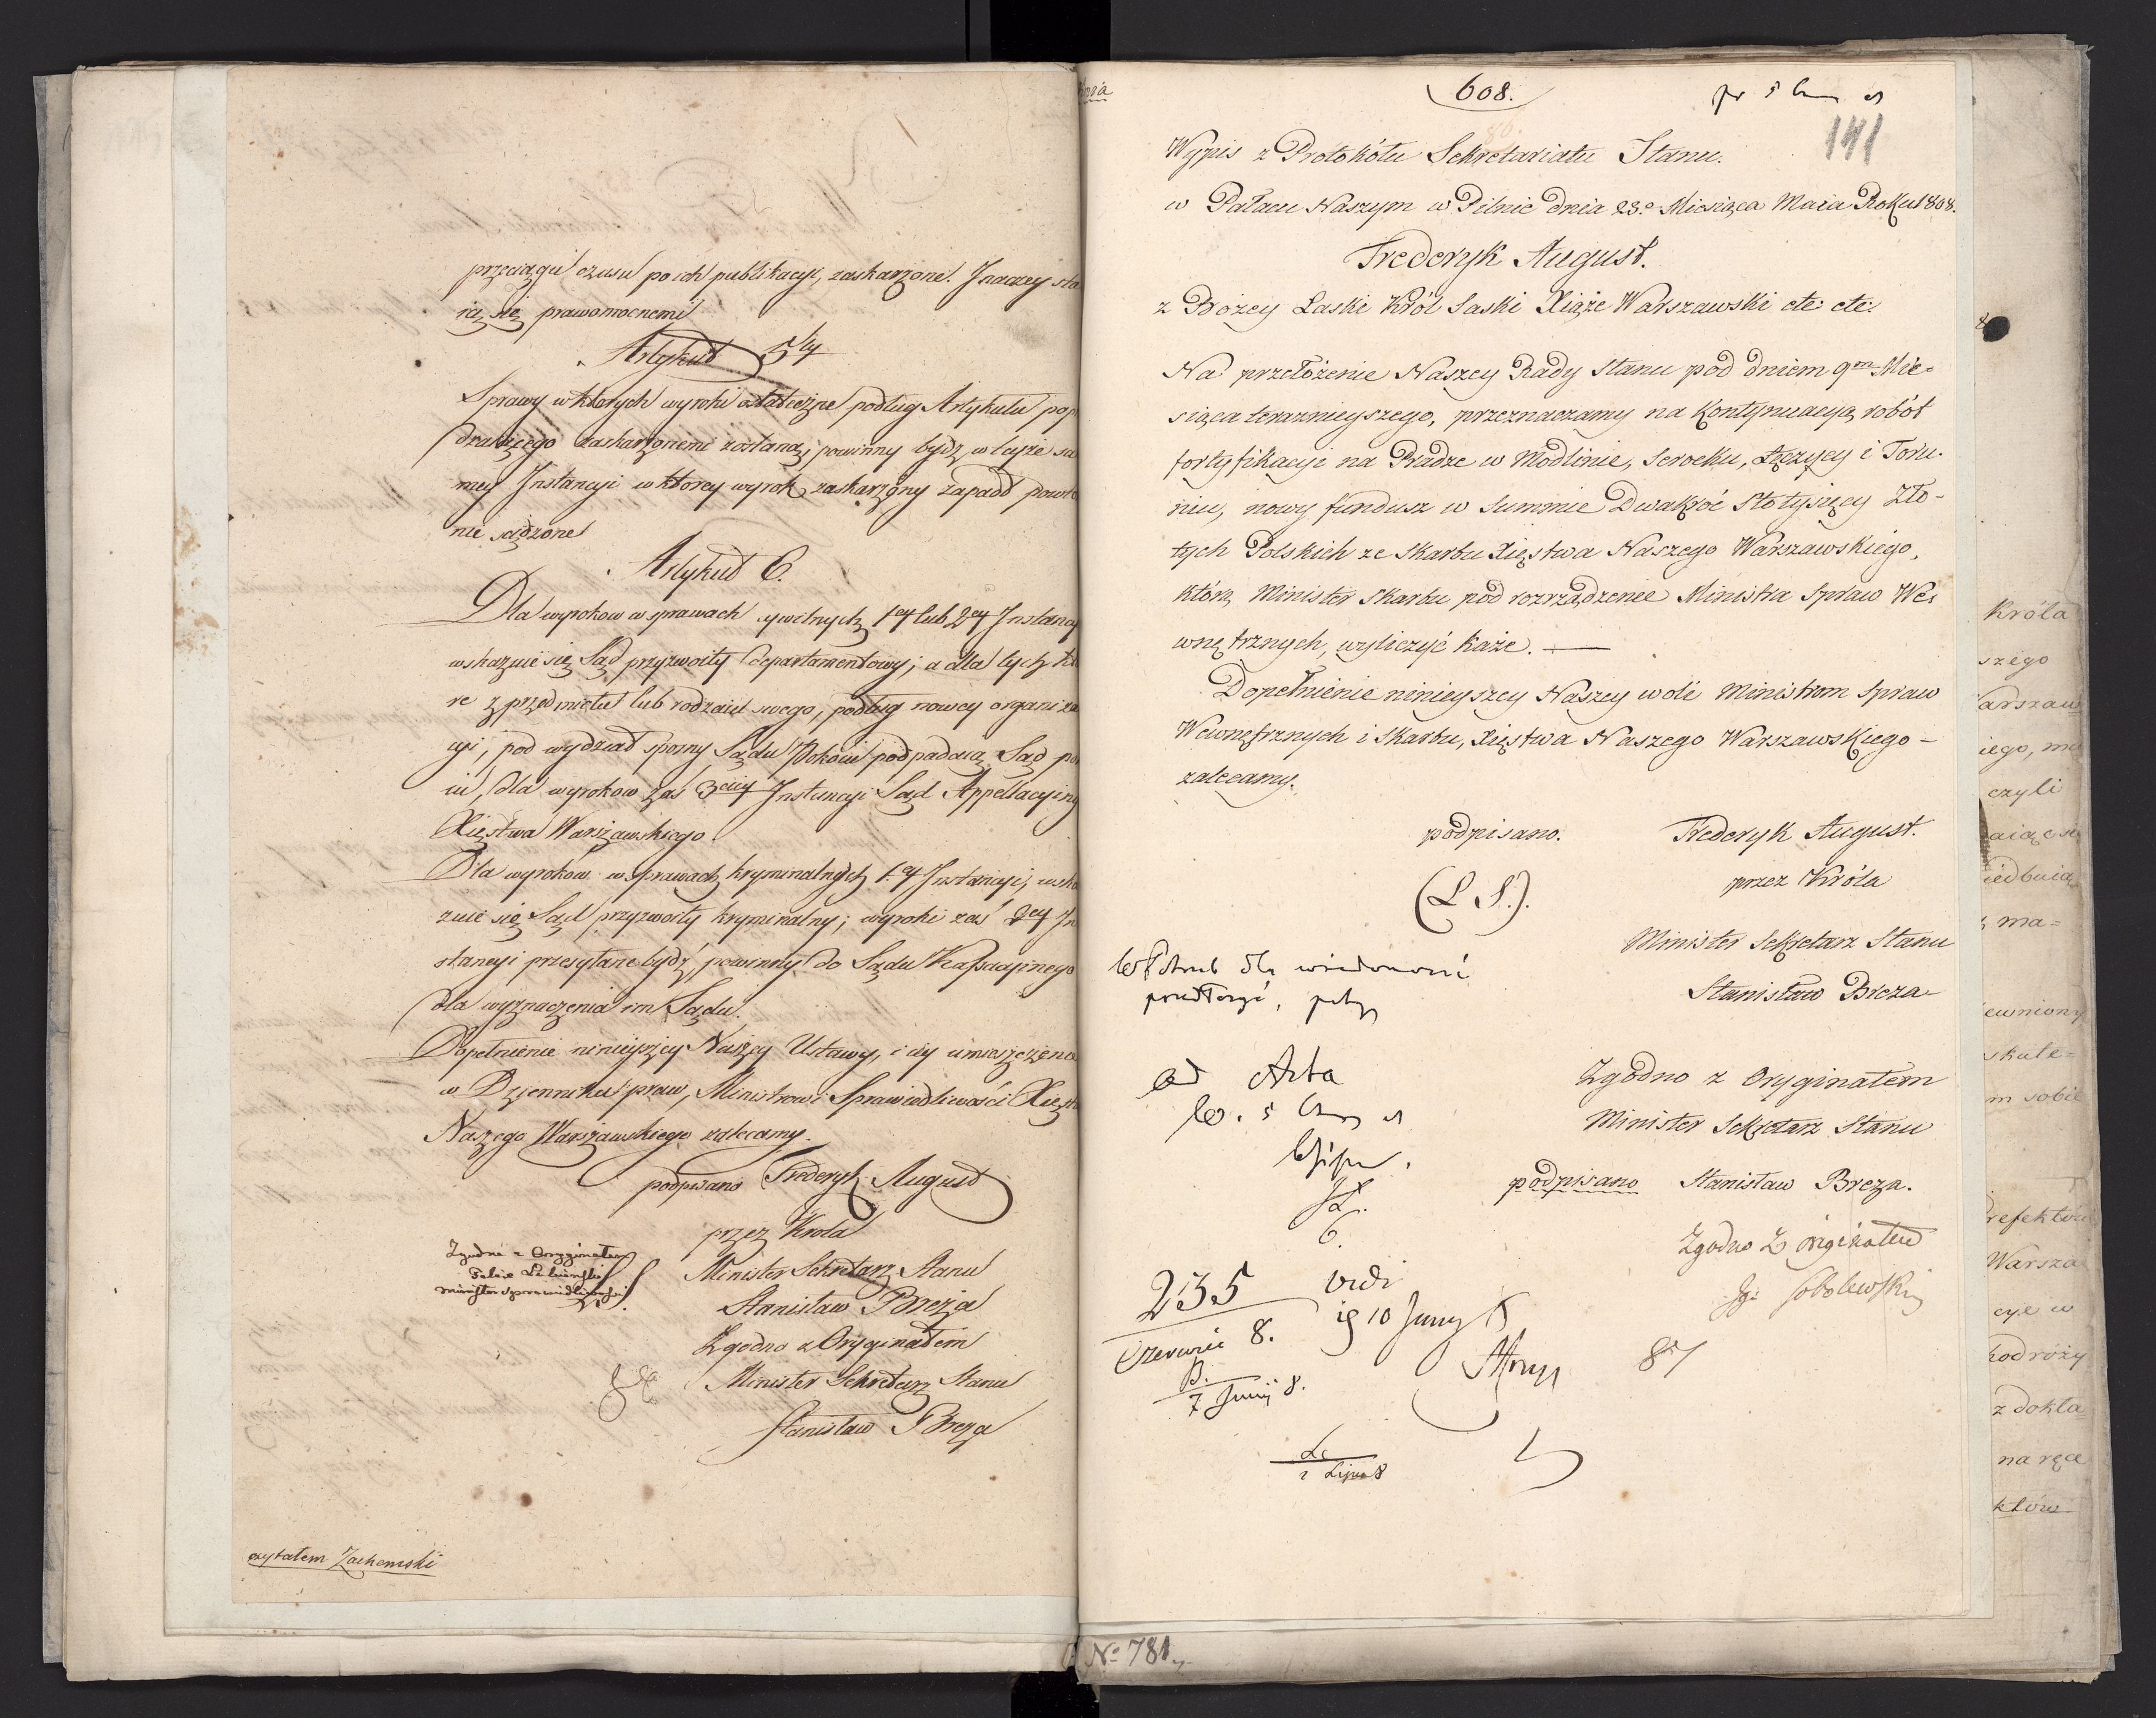 przeciągu czasu po ich publikacyi, zaskarżone. Jnaczey sta
ią się prawomocnemi
Artykuł 5ty
Sprawy w ktorych wyroki ostateczne podług Artykułu pop
drzaiącego zaskarżonemi zostaną, powinny bydź w teyże sa
mey Jnstancyi w ktorey wyrok zaskarżony zapadł powto
nie sądzone
Artykuł 6.
Dla wyrokow w sprawach cywilnych 1ey lub 2ey Jnstancy
wskazuie się Sąd przyzwoity Departamentowy; a dla tych kto
re z przedmiotu lub rodzaiu swego, podług nowey organiza
cyi, pod wydział sporny Sądu Pokoiu podpadaią Sąd po
iu, dla wyrokow zaś 3ciey Jnstancyi Sąd Appellacyiny
Xięstwa Warszawskiego.
Dla wyroków w sprawach kryminalnych 1ey Jnstancyi, wska
zuie się Sąd przyzwoity kryminalny; wyroki zaś 2ey Jn
stancyi przesyłane bydź powinny do Sądu Kassacyinego
dla wyznaczenia im Sądu.
Dopełnienie ninieyszey Naszey Ustawy, i iey umieszczenie
w Dzienniku praw, Ministrowi Sprawiedliwości Xięstwa
Naszego Warszawskiego zalecamy.
podpisano Frederyk August
przez Krola
Minister Sekretarz Stanu
Stanisław Breza
Zgodno z Oryginałem
Minister Sekretarz Stanu
Stanisław Breza
Zgodno z Oryginałem
minister sprawiedliwości
czytałem Zachemski
608.
141
Wypis z Protokółu Sekretariatu Stanu.
w Pałacu Naszym w Pilnic dnia 23.o Miesiąca Maia Roku 1808.
Frederyk August.
z Bożey Łaski Król Saski Xiąże Warszawski etc: etc:
Na przełożenie Naszey Rady Stanu pod dniem 9m Mie=
siąca teraznieyszego, przeznaczamy na kontynuacyą robót
fortyfikacyi na Pradze w Modlinie, Serocku, Łęczycy i Toru-
niu, nowy fundusz w Summie Dwakroć Stotysięcy Zło-
tych Polskich ze Skarbu Xięstwa Naszego Warszawskiego,
którą Minister Skarbu pod rozrządzenie Ministra Spraw We,
wnętrznych, wyliczyć każe.
Dopełnienie ninieyszey Naszey woli Ministrom Spraw
Wewnętrznych i Skarbu, Xięstwa Naszego Warszawskiego -
zalecamy.
podpisano. Frederyk August.
przez Króla
(L. S.).
Minister Sekretarz Stanu
Stanisław Breza
ad Acta
Zgodno z Oryginałem
Minister Sekretarz Stanu
podpisano Stanisław Breza.
Zgodno z originałem
Sobolewski
235
Czerwiec 8.
vidi
10 Juny
B.
7 Junij 8.
87
Lipca 8
No 781
Króla
szego
Warszaw
iego, ma
czyli
aiące się
iedbuią
ma=
ewniony
skute=
m sobie
refektów
Warsza
cye w
podróży
z dokła
na ręce
któw